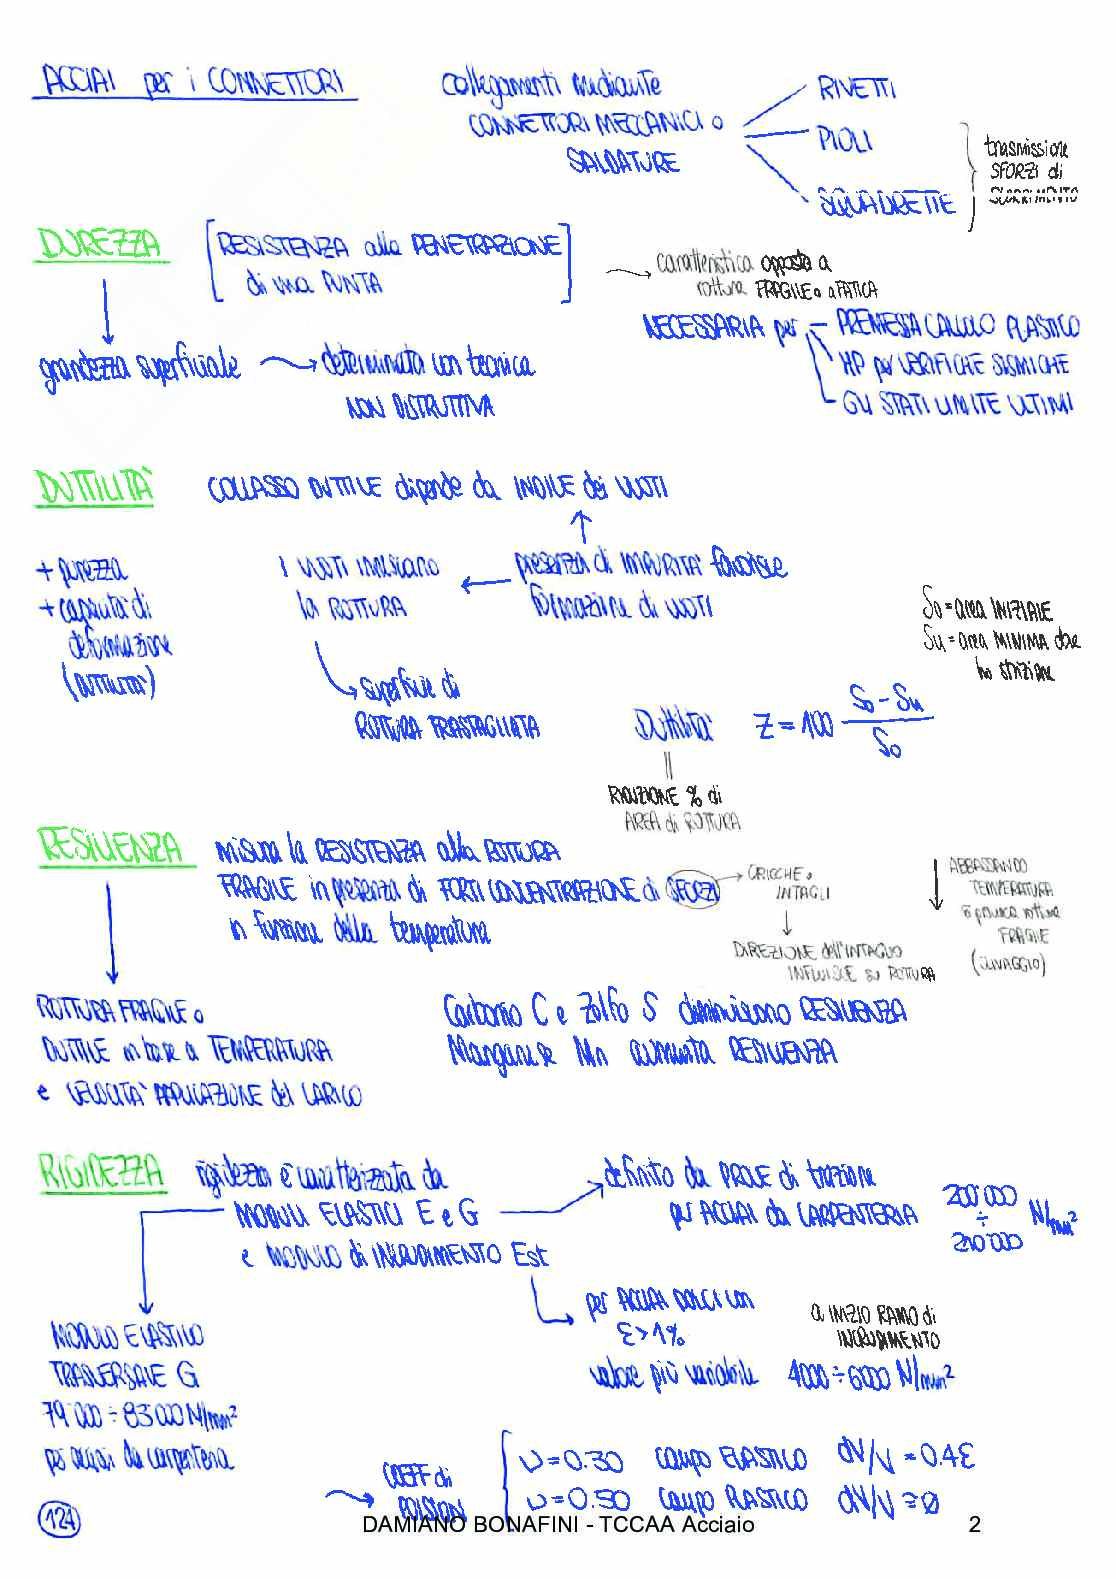 ACCIAI per i CONNETTORI
collegamenti mediante
CONNETTORI MECCANICI o
SALDATURE
RIVETTI
PIOLI
SQUADRETTE
trasmissione
SFORZI di
SCORRIMENTO
DUREZZA
[RESISTENZA alla PENETRAZIONE
di una PUNTA]
grandezza superficiale → determinata con tecnica
NON DISTRUTTIVA
caratteristica opposta a
rottura FRAGILE o a FATICA
NECESSARIA per - PREMESSA CALCOLO PLASTICO
HP per VERIFICHE SISMICHE
GLI STATI LIMITE ULTIMI
DUTTILITÀ
COLLASSO DUTTILE dipende da INDICE dei VUOTI
+ purezza
+ capacità di
deformazione
(DUTTILITÀ)
I VUOTI innescano
la ROTTURA
presenza di IMPURITÀ favorisce
formazione di VUOTI
superficie di
ROTTURA FRASTAGLIATA
So = area INIZIALE
Su = area MINIMA che
ho strizione
Duttilità Z = 100 (So - Su) / So
RIDUZIONE % di
AREA di ROTTURA
RESILIENZA
misura la RESISTENZA alla ROTTURA
FRAGILE in presenza di FORTI CONCENTRAZIONE di SFORZI
in funzione della temperatura
CRICCHE o
INTAGLI
DIREZIONE dell'INTAGLIO
INFLUISCE su ROTTURA
ABBASSANDO
TEMPERATURA
rottura
FRAGILE
(CLIVAGGIO)
ROTTURA FRAGILE o
DUTTILE in base a TEMPERATURA
e VELOCITÀ APPLICAZIONE del CARICO
Carbonio C e Zolfo S diminuiscono RESILIENZA
Manganese Mn aumenta RESILIENZA
RIGIDEZZA
rigidezza è caratterizzata da
MODULI ELASTICI E e G
e MODULO di INCRUDIMENTO Est
definito da PROVE di trazione
per ACCIAI da CARPENTERIA
200'000
÷
210'000
N/mm²
per ACCIAI DOLCI con
ε > 1%
valore più variabile 4000 ÷ 6000 N/mm²
a INIZIO RAMO di
INCRUDIMENTO
MODULO ELASTICO
TRASVERSALE G
79'000 ÷ 83'000 N/mm²
per acciai da carpenteria
COEFF di
POISSON
ν = 0.30 campo ELASTICO dV/V = 0.4ε
ν = 0.50 campo PLASTICO dV/V = 0
124
DAMIANO BONAFINI - TCCAA Acciaio
2